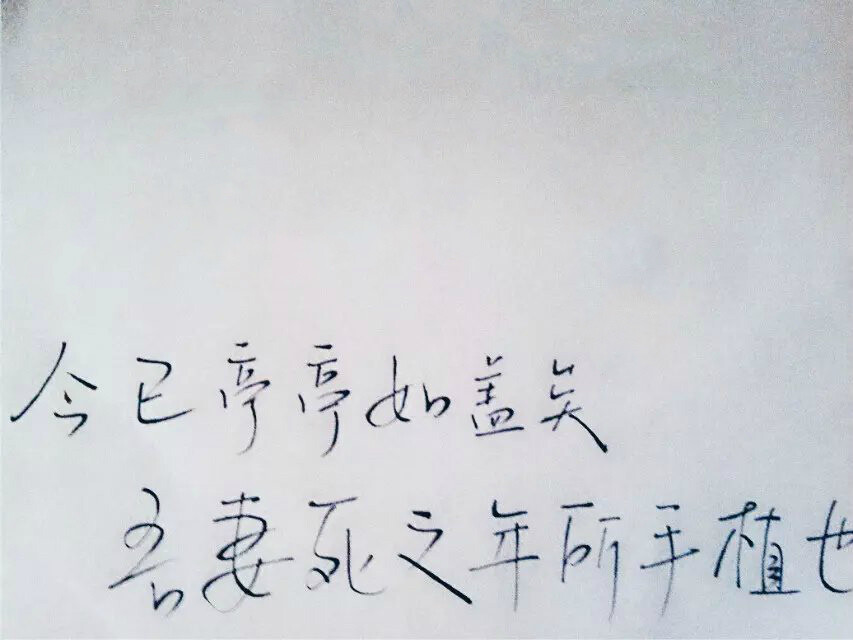 今已亭亭如盖矣
吾妻死之年所手植也